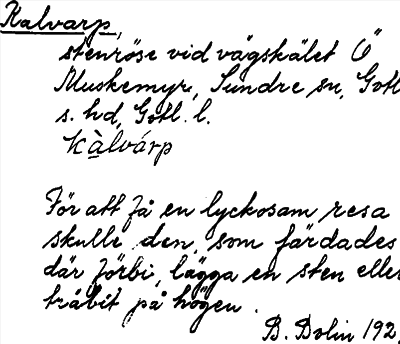 Kalvarp,
stenröse vid vägskälet Ö
Muskemyr, Sundre sn, Gotl
s. hd, Gotl. l.
Kàlvárp
För att få en lyckosam resa
skulle den, som färdades
där förbi, lägga en sten elle
träbit på högen.
B. Bolin 192